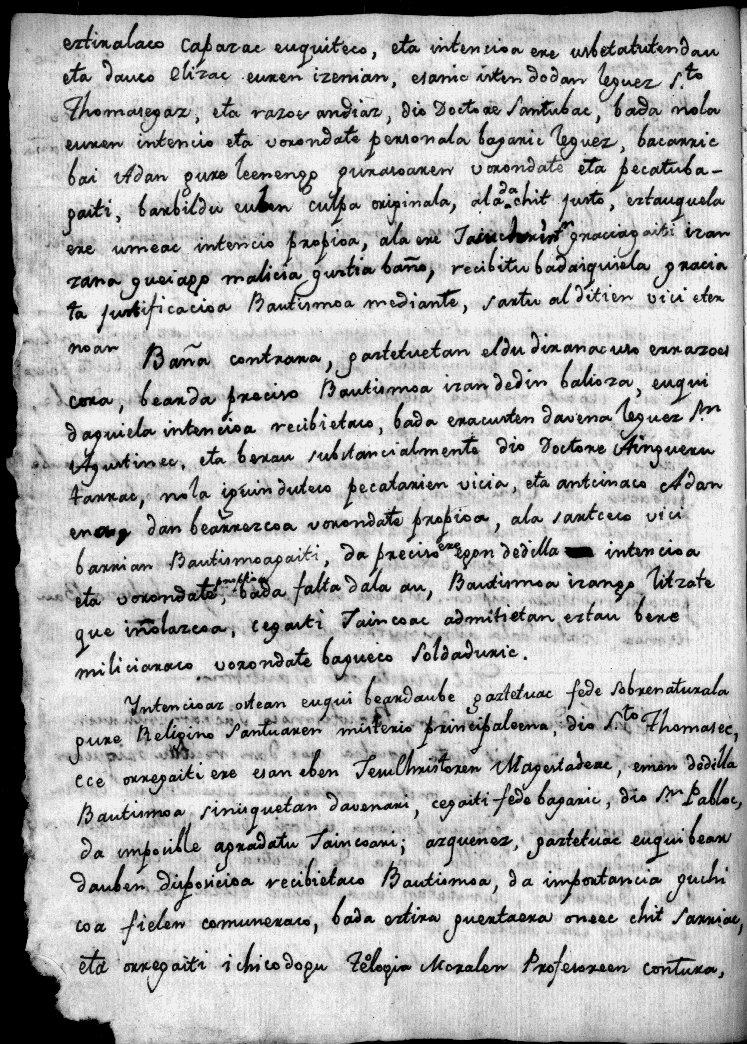 eztiralaco capazac euquiteco, eta intencioa ere usbetatutendau
eta dauco Elizac euren izenian, esanic isten dodan leguez S.to
Thomasegaz, eta razoe andiaz, dio Doctore Santubac, bada nola
euren intencio eta vorondate personala bagaric leguez, bacarric
bai Adan gure leenengo gurasoaren vorondate eta pecatuba-
gaiti, barbildu euben culpa originala, ala da chit justo, eztauquela
ere umeac intencio propioa, ala ere graciagaiti izan
zana gueiago malicia guztia baño, recibitu badaiquiela gracia
ta justificacioa Bautismoa mediante, sartu alditien vici eter
noan
Baña contrara, gaztetuetan eldu diranac uso errazoe
cora, bearda preciso Bautismoa izan dedin balioza, euqui
daguiela intencioa recibietaco, bada eracusten davena leguez S.n
Agustinec, eta berau substancialmente dio Doctore Aingueru
tarrac, nola iguinduteco pecatarien vicia, eta antcinaco Adan
dan bearrezcoa vorondate propioa, ala sartceco vici
barrian Bautismoagaiti, da preciso ere egon dedilla intencioa
eta vorondate propioa, bada falta dala au, Bautismoa izango litzate
que iñolazcoa, cegaiti Jaincoac admitietan eztau bere
miliciaraco vorondate bagueco soldaduric.
Intencioaz ostean euqui beardaube gaztetuac fede sobrenaturala
gure Religino Santuaren misterio principaleena, dio S.to Thomasec,
ece orregaiti ere esan eben JesuChristoren Magestadeac, emen dedilla
Bautismoa sinisquetan davenari, cegaiti fede bagaric, dio S.n Pabloc,
da imposible agradatu Jaincoari; azquenez, gaztetuac euqui bear
dauben disposicioa recibietaco Bautismoa, da importancia guchi
coa fielen comuneraco, bada eztira guertaera oneec chit sarriac,
eta orregaiti ichico dogu Teologia Moralen Profesoreen contura,